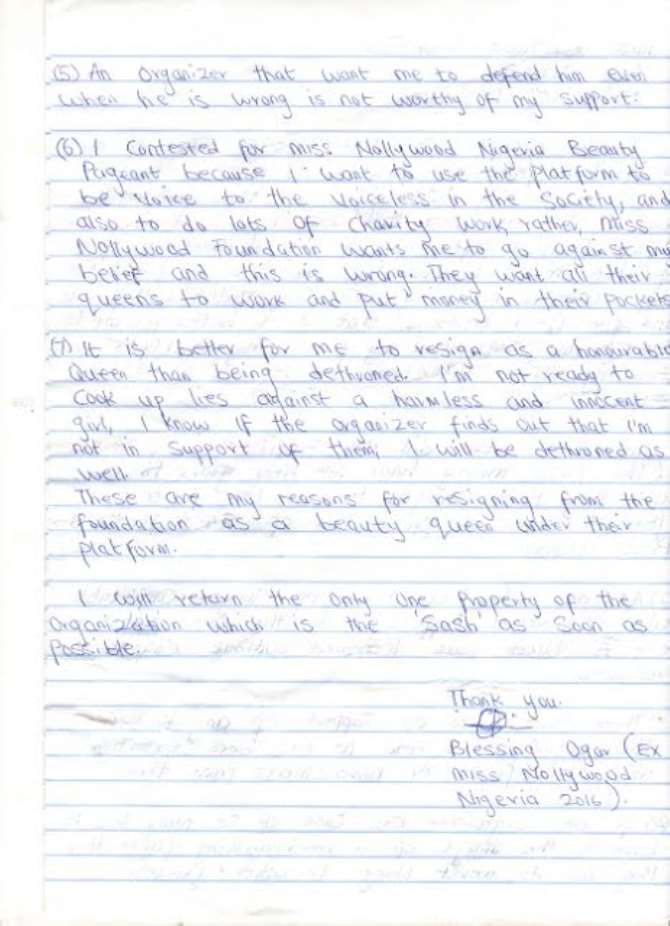 (5) An Organizer that want me to defend him even
when he is wrong is not worthy of my support.
(6) I Contested for miss Nollywood Nigeria Beauty
Pageant because I want to use the platform to
be voice to the voiceless in the Society, and
also to do lots of Charity work, rather, Miss
Nollywood Foundation wants me to go against my
belief and this is wrong. They want all their
queens to work and put money in their pocket
(7) It is better for me to resign as a honourable
Queen than being dethroned. I'm not ready to
Cook up lies against a harmless and innocent
girl, I know if the organizer finds out that I'm
not in support of them, I will be dethroned as
well.
These are my reasons for resigning from the
foundation as a beauty queen under their
platform.
I will return the only one property of the
Organization which is the 'Sash' as Soon as
possible.
Thank you.
Blessing Ogar (Ex
miss Nollywood
Nigeria 2016).